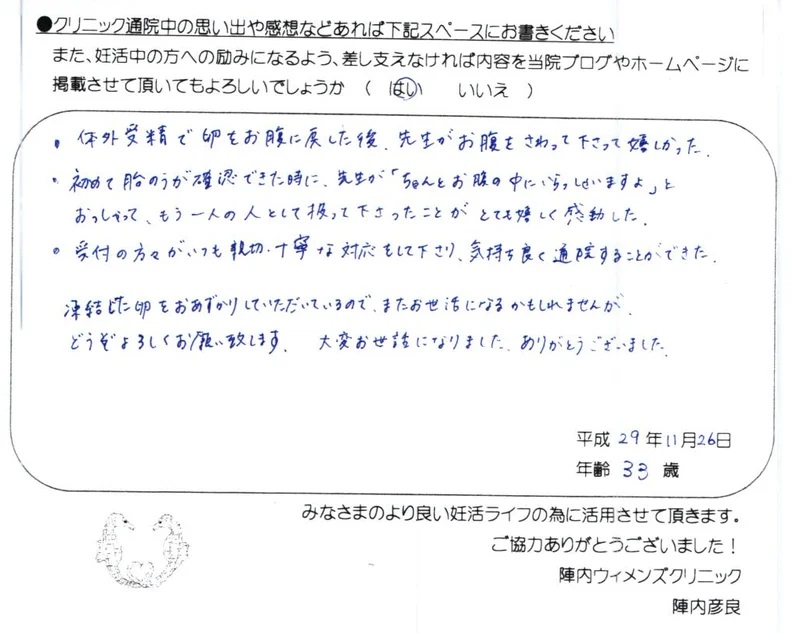 ●クリニック通院中の思い出や感想などあれば下記スペースにお書きください
また、妊活中の方への励みになるよう、差し支えなければ内容を当院ブログやホームページに
掲載させて頂いてもよろしいでしょうか （ はい いいえ ）
• 体外受精で卵をお腹に戻した後、先生がお腹をさわって下さって嬉しかった。
• 初めて胎のうが確認できた時に、先生が「ちゃんとお腹の中にいらっしゃいますよ」と
おっしゃって、もう一人の人として扱って下さったことがとても嬉しく感動した。
• 受付の方々がいつも親切・丁寧な対応をして下さり、気持ち良く通院することができた。
凍結した卵をおあずかりしていただいているので、またお世話になるかもしれませんが、
どうぞよろしくお願い致します。 大変お世話になりました。ありがとうございました。
平成 29 年 11 月 26 日
年齢 33 歳
みなさまのより良い妊活ライフの為に活用させて頂きます。
ご協力ありがとうございました！
陣内ウィメンズクリニック
陣内彦良